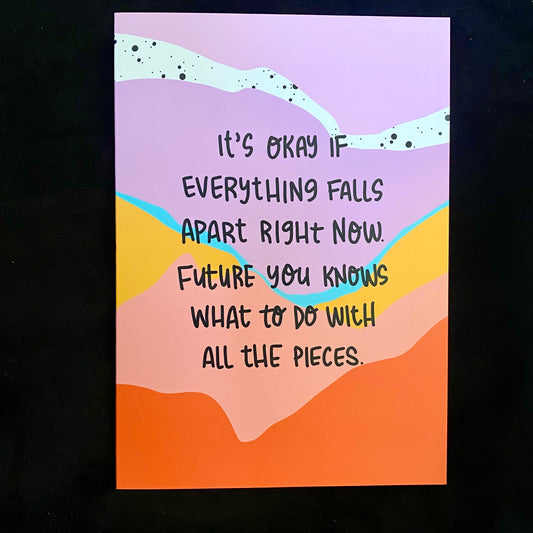 It's OKAY IF
EVERYtHING FALLS
APART RIGHt NOW.
FUtURE yOU KNOWS
WHAT tO DO WItH
ALL tHE PIECES.